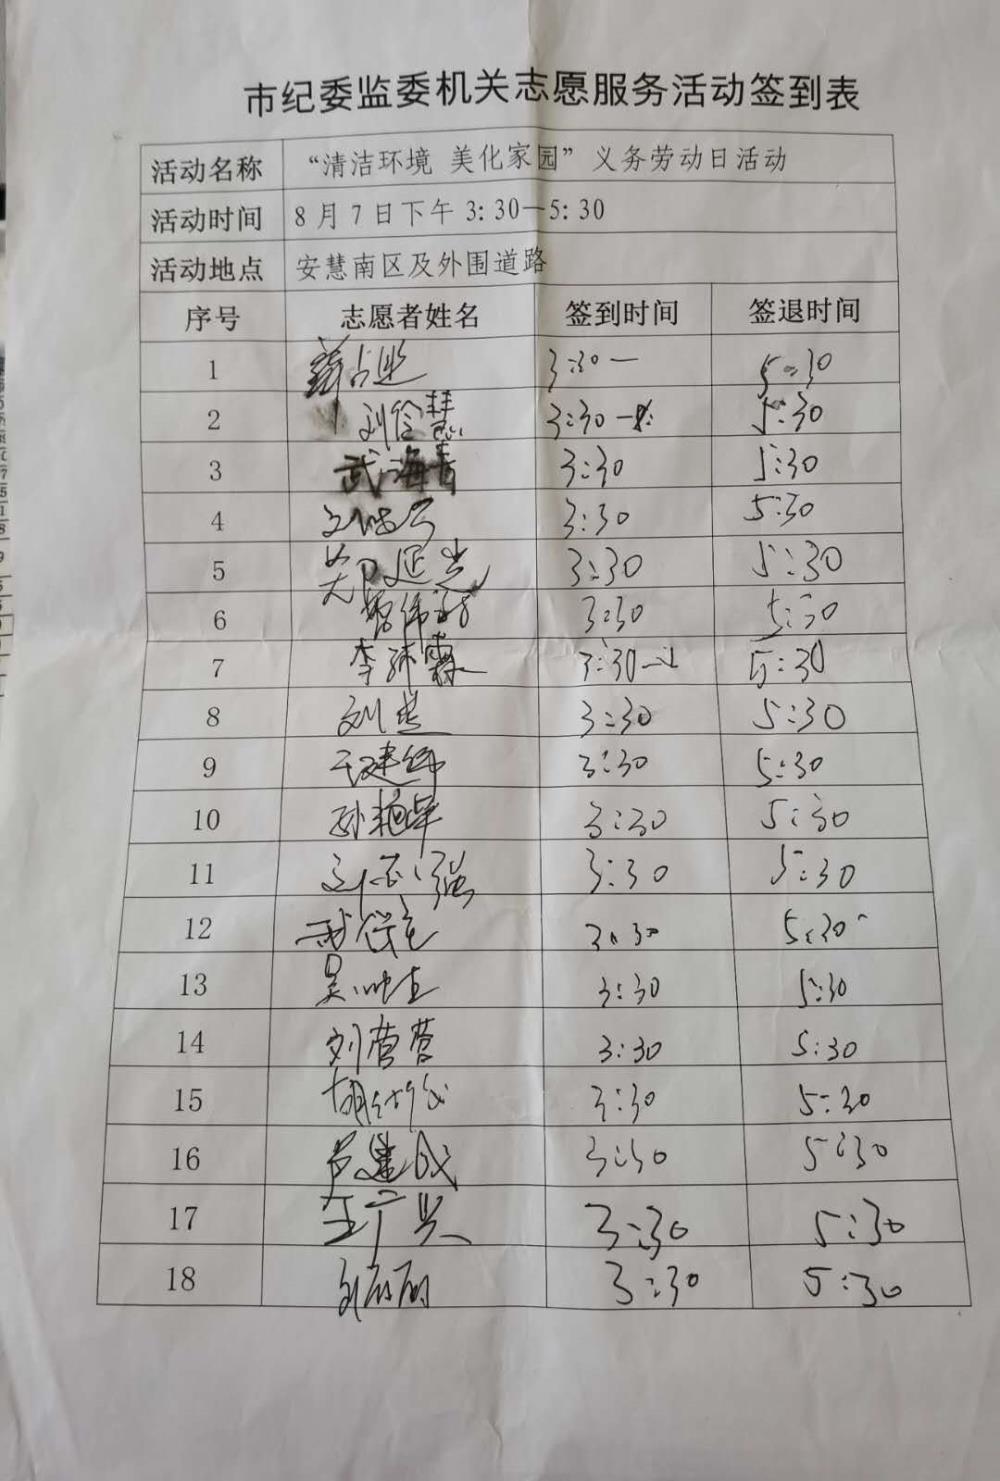 市纪委监委机关志愿服务活动签到表
活动名称 “清洁环境 美化家园”义务劳动日活动
活动时间 8月7日下午3:30—5:30
活动地点 安慧南区及外围道路
序号 志愿者姓名 签到时间 签退时间
1 3:30— 5:30
2 刘伶慧 3:30— 5:30
3 武海青 3:30 5:30
4 3:30 5:30
5 郑延光 3:30 5:30
6 3:30 5:30
7 李沛霖 3:30— 5:30
8 3:30 5:30
9 于建伟 3:30 5:30
10 孙艳华 3:30 5:30
11 3:30 5:30
12 3:30 5:30
13 3:30 5:30
14 刘蕾蕾 3:30 5:30
15 3:30 5:30
16 芦建成 3:30 5:30
17 王广兴 3:30 5:30
18 3:30 5:30